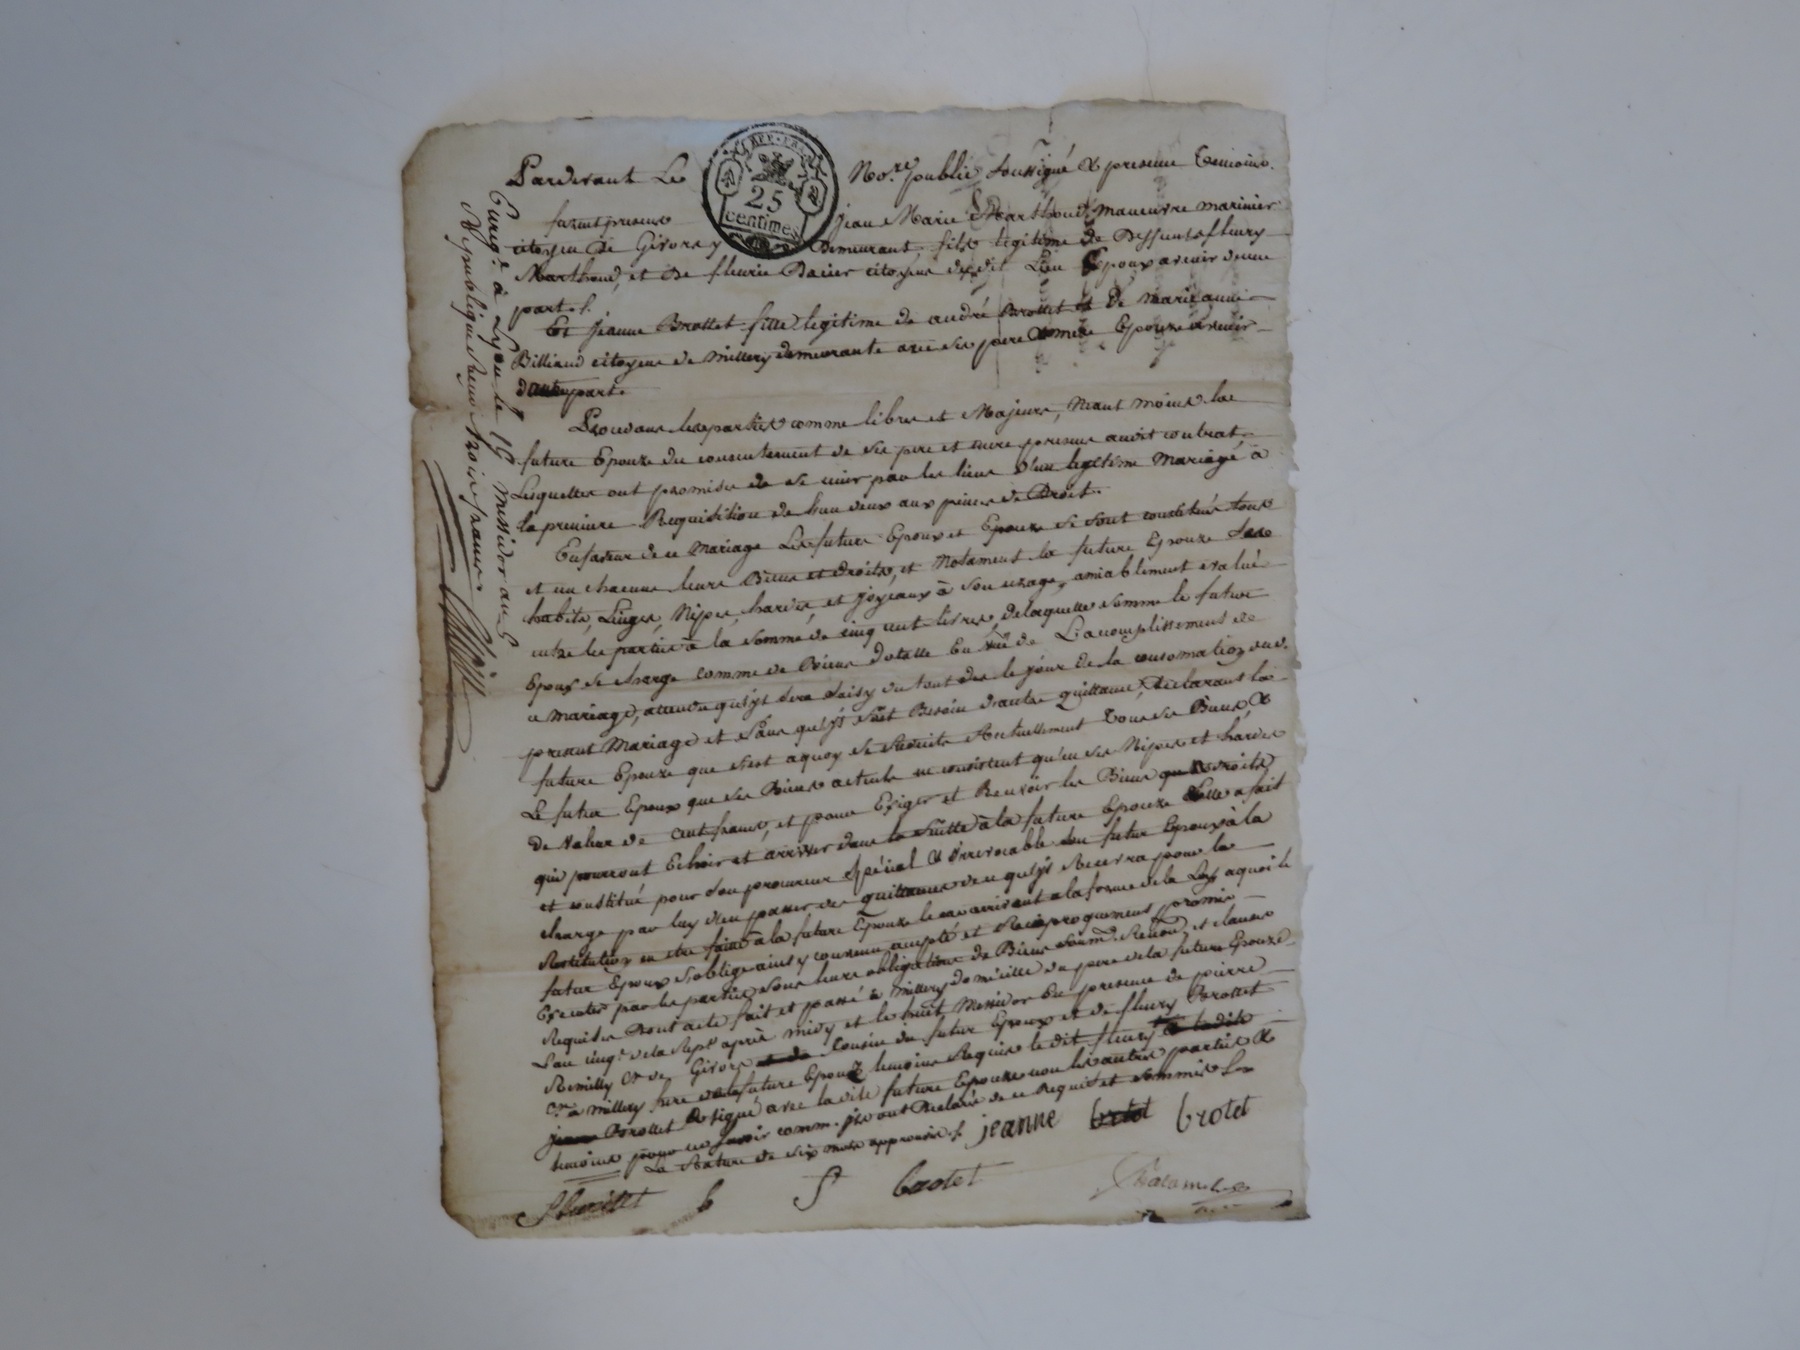 Pardevant Le No.re public soussigné & presence temoins.
RÉP. FRA.
25
centimes
furent presens Jean Marie Marthoud, maneuvre marinier
citoyen de Givors y Demeurant, fils legitime de Deffunts fleury
Marthoud, et De fleurie Dacier citoyens dudit Lieu Epoux avenir d'une
part./.
Et Jeanne Brottet fille legitime de andré Brottet et De marie anne
Billiaud citoyens de millery demeurante avec ses pere & mere Epouze avenir
d'autre part.
Procedans les parties comme libres et Majeurs, Neant moins la
future Epouze du consentement de ses pere et mere presens audit contrat,
Lesquelles ont promises de se unir par les liens d'un legitime Mariage à
la premiere Requisition de l'un deux aux peines de Droit.
En faveur de ce Mariage Les future Epoux et Epouze se sont constitués tous
et un chacuns leurs Biens et droits, et Notament la future Epouze ses
habits, Linges, Nipes, hardes, et Joyeaux à son uzage, amiablement evalué
entre les parties à la somme de cinq cent livres, delaquelle somme le future
Epoux se charge comme de Biens dotalle En vüe de L'acomplissement de
ce mariage, attendu qu'ils sera saisy du tout des le jour de la consomation du d.
present Mariage et sans qu'ils soit Besoin d'autre quittance, Declarant la
future Epouze que c'est aquoy se Reduits Actuellement Tous ses Biens, &
Le futur Epoux que ses Biens actuels ne consistent qu'en ses Nipes et hardes
de Valeur de cent francs, et pour Exiger et Recevoir les Biens droits
qui pourront Echoir et arriver dans la suitte à la future Epouze Elle a fait
et constitué pour son procureur spécial & irrevocable son futur Epoux à la
charge par luy d'en passer des quittances de ce qu'ils Recevra pour la
Restitution en etre faite à la future Epouze le cas arrivant a la forme de la Loy aquoi le
futur Epoux s'oblige ainsy convenu accepté et Reciproquement promis
Executer par les parties sous leurs obligations de Biens soum.s Renon. et clauses
Requises Dont acte fait et passé à millery domicille du pere de la future Epouze
L'an cinq.e de la Rep.e après midy et le huit Messidor En presence de pierre
Remilly C.en de Givors Cousin du futur Epoux et de fleury Brottet
C.en à millery frere de la future Epouze temoins Requis le dit fleury
Brottet & signé avec la dite future Epouze non les autres parties &
temoins pour ne savoir comm. ils ont Declarés de ce Requis et sommés
La Rature de six mots approuvés ./. jeanne brotet
f brotet
Enreg.é à Lyon le 19 messidor an 5
Republique Reçu trois francs